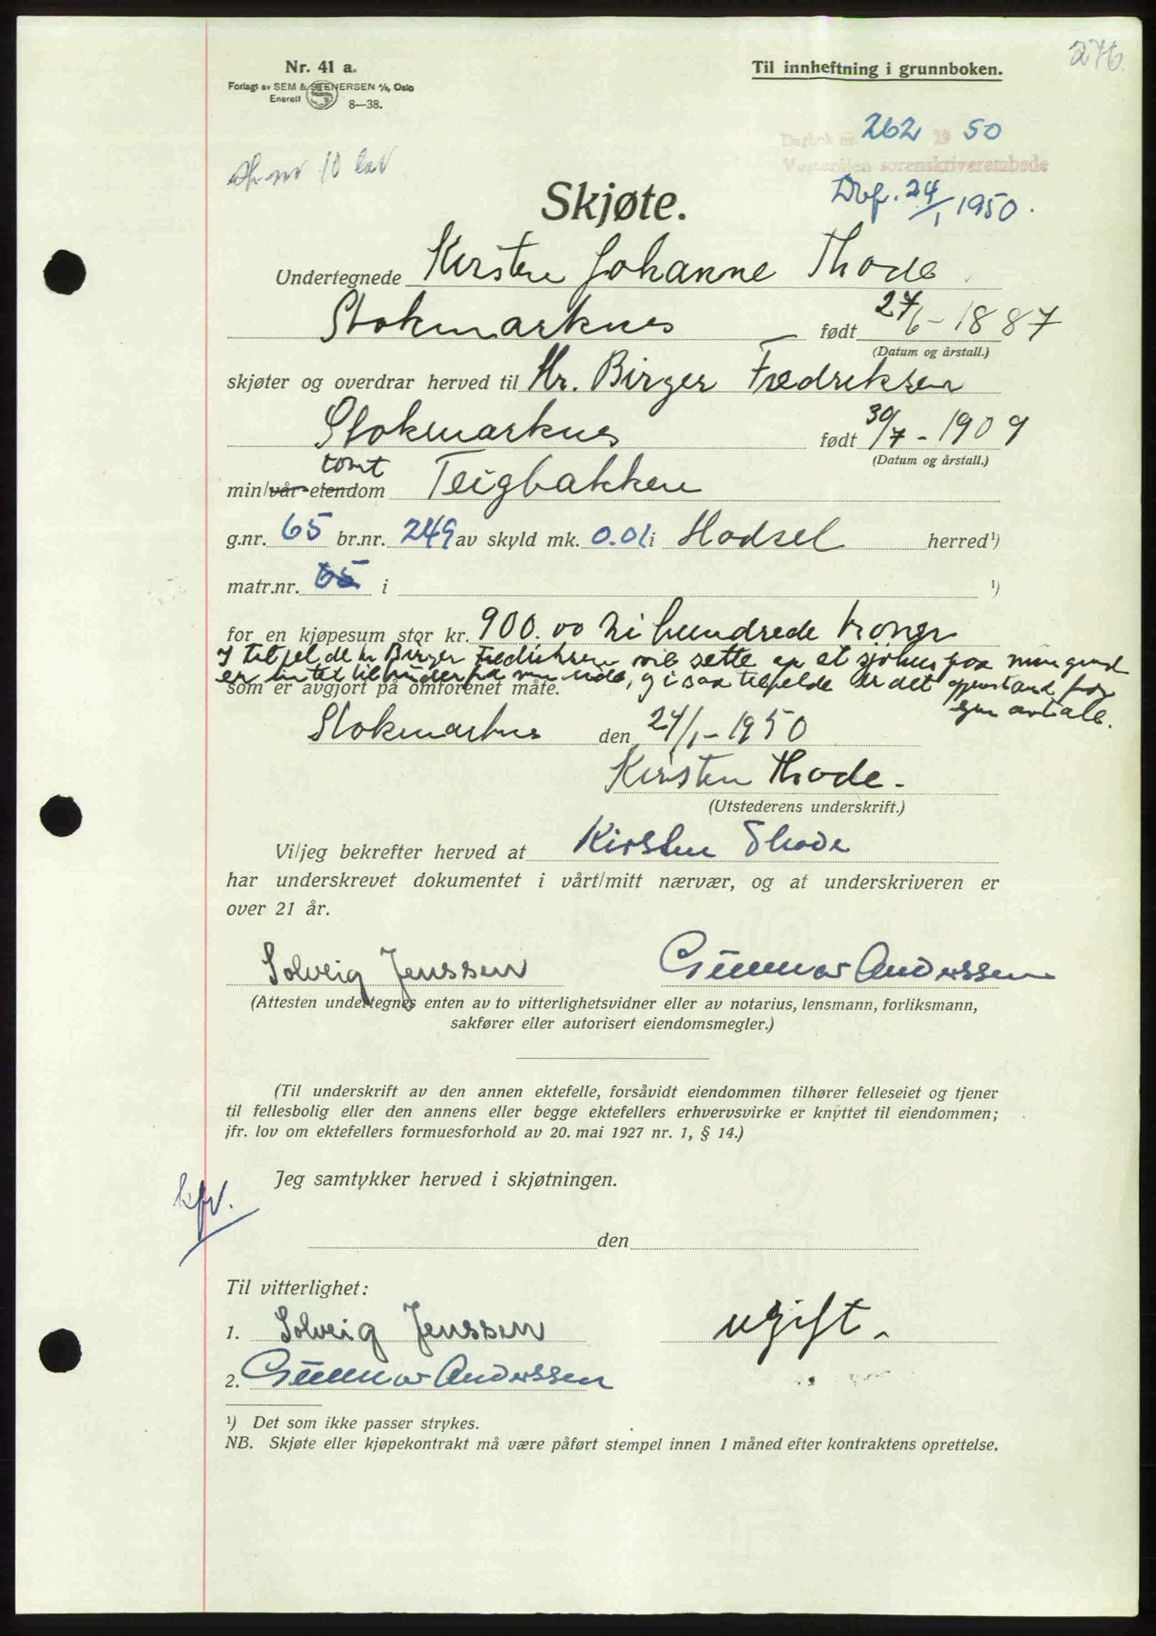 276
Nr. 41 a.
Forlagt av SEM & STENERSEN A/S, Oslo
Enerett 8—38.
Til innheftning i grunnboken.
Dagbok nr. 262 19 50
Vesterålen sorenskriverembede
Dbf. 24/1 1950.
10
Skjøte.
Undertegnede Kirsten Johanne Thode
Stokmarknes født 27/6-1887
(Datum og årstall.)
skjøter og overdrar herved til Hr. Birger Fredriksen
Stokmarknes født 30/7-1909
(Datum og årstall.)
tomt
min/vår eiendom Teigbakken
g.nr. 65 br.nr. 249 av skyld mk. 0.01 i Hadsel herred¹)
matr.nr. 65 i ¹)
for en kjøpesum stor kr. 900.00 Ni hundrede kroner
I tilfelde hr Birger Fredriksen vil sette op et sjøhus paa min grund
er intet til hinder fra min side, i saa tilfelde er det gjenstand for
som er avgjort på omforenet måte.
egen avtale.
Stokmarknes den 24/1-1950
Kirsten Thode.
(Utstederens underskrift.)
Vi/jeg bekrefter herved at Kirsten Thode
har underskrevet dokumentet i vårt/mitt nærvær, og at underskriveren er
over 21 år.
Solveig Jenssen Gunnar Anderssen
(Attesten undertegnes enten av to vitterlighetsvidner eller av notarius, lensmann, forliksmann,
sakfører eller autorisert eiendomsmegler.)
(Til underskrift av den annen ektefelle, forsåvidt eiendommen tilhører felleseiet og tjener
til fellesbolig eller den annens eller begge ektefellers erhvervsvirke er knyttet til eiendommen;
jfr. lov om ektefellers formuesforhold av 20. mai 1927 nr. 1, § 14.)
kfr.
Jeg samtykker herved i skjøtningen.
den
Til vitterlighet:
1. Solveig Jenssen ugift.
2. Gunnar Anderssen
¹) Det som ikke passer strykes.
NB. Skjøte eller kjøpekontrakt må være påført stempel innen 1 måned efter kontraktens oprettelse.